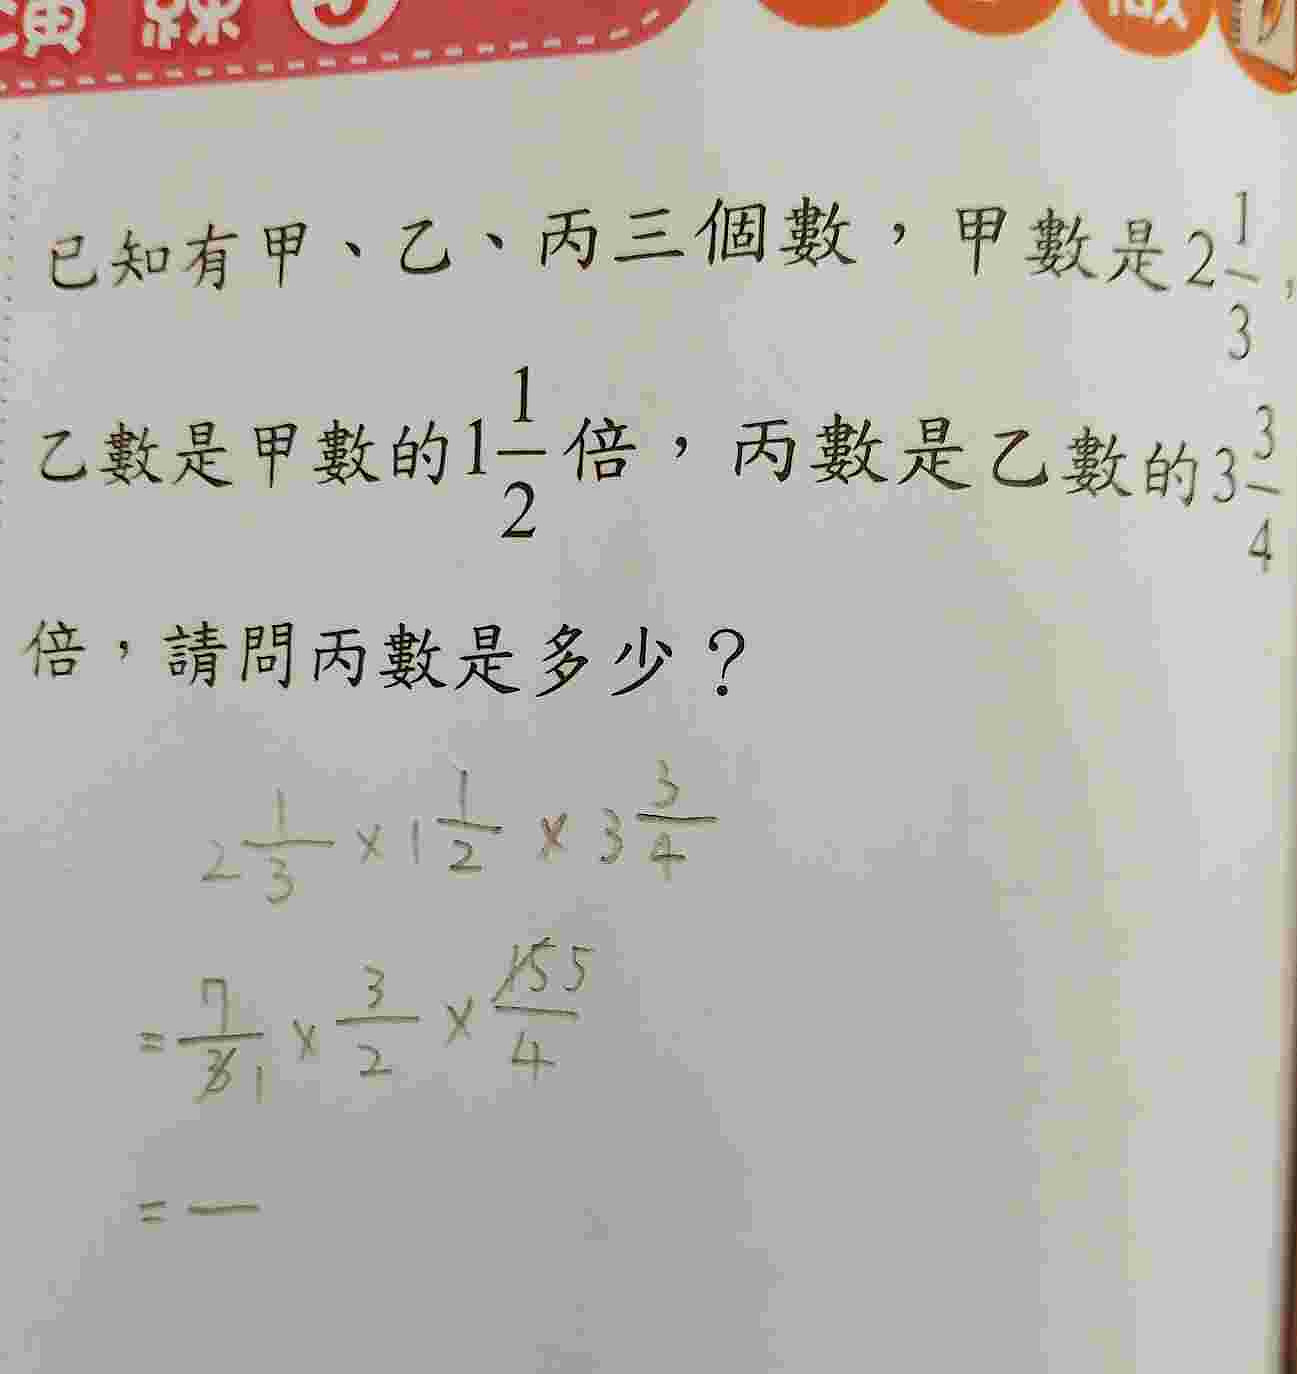 演練
做
已知有甲、乙、丙三個數，甲數是2 1/3，
乙數是甲數的1 1/2倍，丙數是乙數的3 3/4
倍，請問丙數是多少？
2 1/3 × 1 1/2 × 3 3/4
= 7/3 1 × 3/2 × 15 5/4
= —